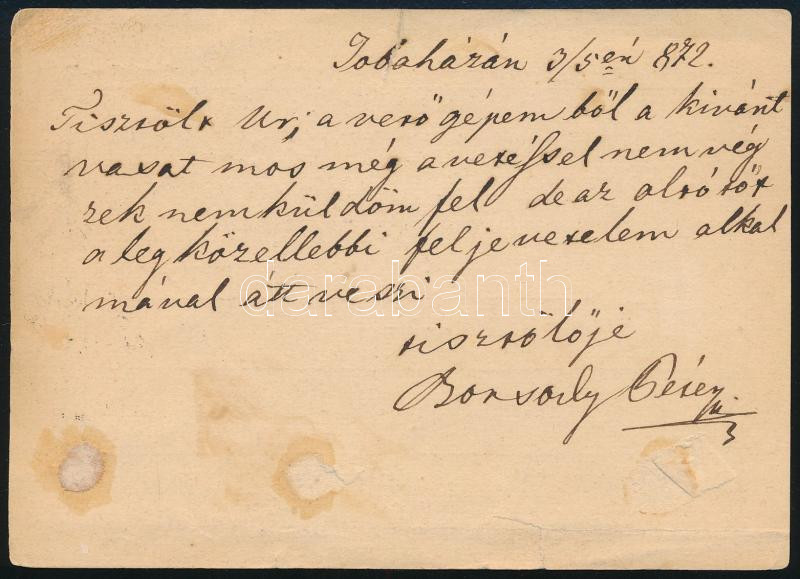 Jobaházán 3/5én 872.
Tisztölt Ur; a verő gépem ből a kivánt
vasat mos még a veréssel nem vég
zek nem küldöm fel de az alsó röt
a leg közellebbi feljevetelem alkal
mával átt veszi
tisztölője
Borsody Péter
darabanth